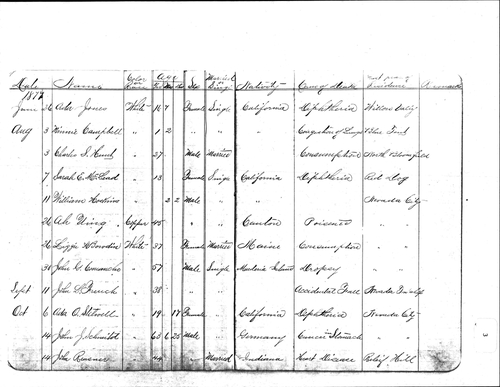 Date Name Color or Race Age Sex Married or Single Nativity Cause of Death Residence Remarks
1877 Y M D
June 26 Ada Jones White 16 7 Female Single California Diphtheria Willow Valley
Aug 3 Minnie Campbell " 1 2 " " " Congestion of Lungs Blue Tent
3 Charles S. " 37 Male Married Consumption North Bloomfield
7 Sarah E. " 13 Female Single California Diphtheria Red Dog
11 William Hoskins 2 2 Male " Nevada City
26 Ah Wing Copper 45 " Canton Poisoned "
26 Lizzie White 37 Female Married Maine Consumption " "
31 John G. " 57 Male Single Island Dropsy " "
Sept 11 John S. French " 38 " " Accidental Fall Nevada
Oct 6 Ada A. Stilwell " 19 17 Female California Diphtheria Nevada City
14 John J. Schmidt " 63 6 25 Male Germany Cancer Stomach " "
14 John " 44 " Married Indiana Heart Disease Relief Hill
3